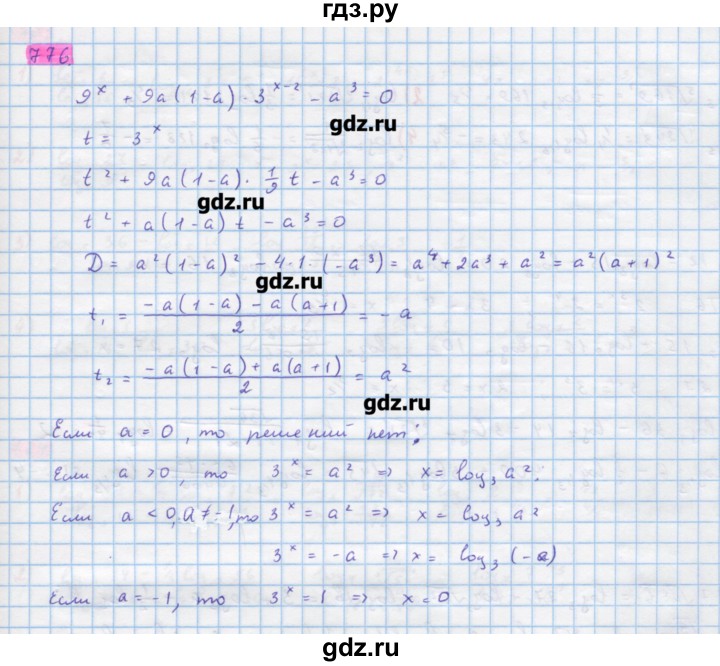 гдз.ру
776.
9^x + 9a(1-a) · 3^{x-2} - a^3 = 0
gdz.ru
t = 3^x
t^2 + 9a(1-a) · 1/9 t - a^3 = 0
gdz.ru
t^2 + a(1-a) t - a^3 = 0
D = a^2(1-a)^2 - 4·1·(-a^3) = a^4 + 2a^3 + a^2 = a^2(a+1)^2
gdz.ru
t_1 = (-a(1-a) - a(a+1))/2 = -a
t_2 = (-a(1-a) + a(a+1))/2 = a^2
gdz.ru
Если a = 0, то решений нет;
Если a > 0, то 3^x = a^2 => x = log_3 a^2;
Если a < 0, a ≠ -1, то 3^x = a^2 => x = log_3 a^2
3^x = -a => x = log_3 (-a)
Если a = -1, то 3^x = 1 => x = 0
gdz.ru